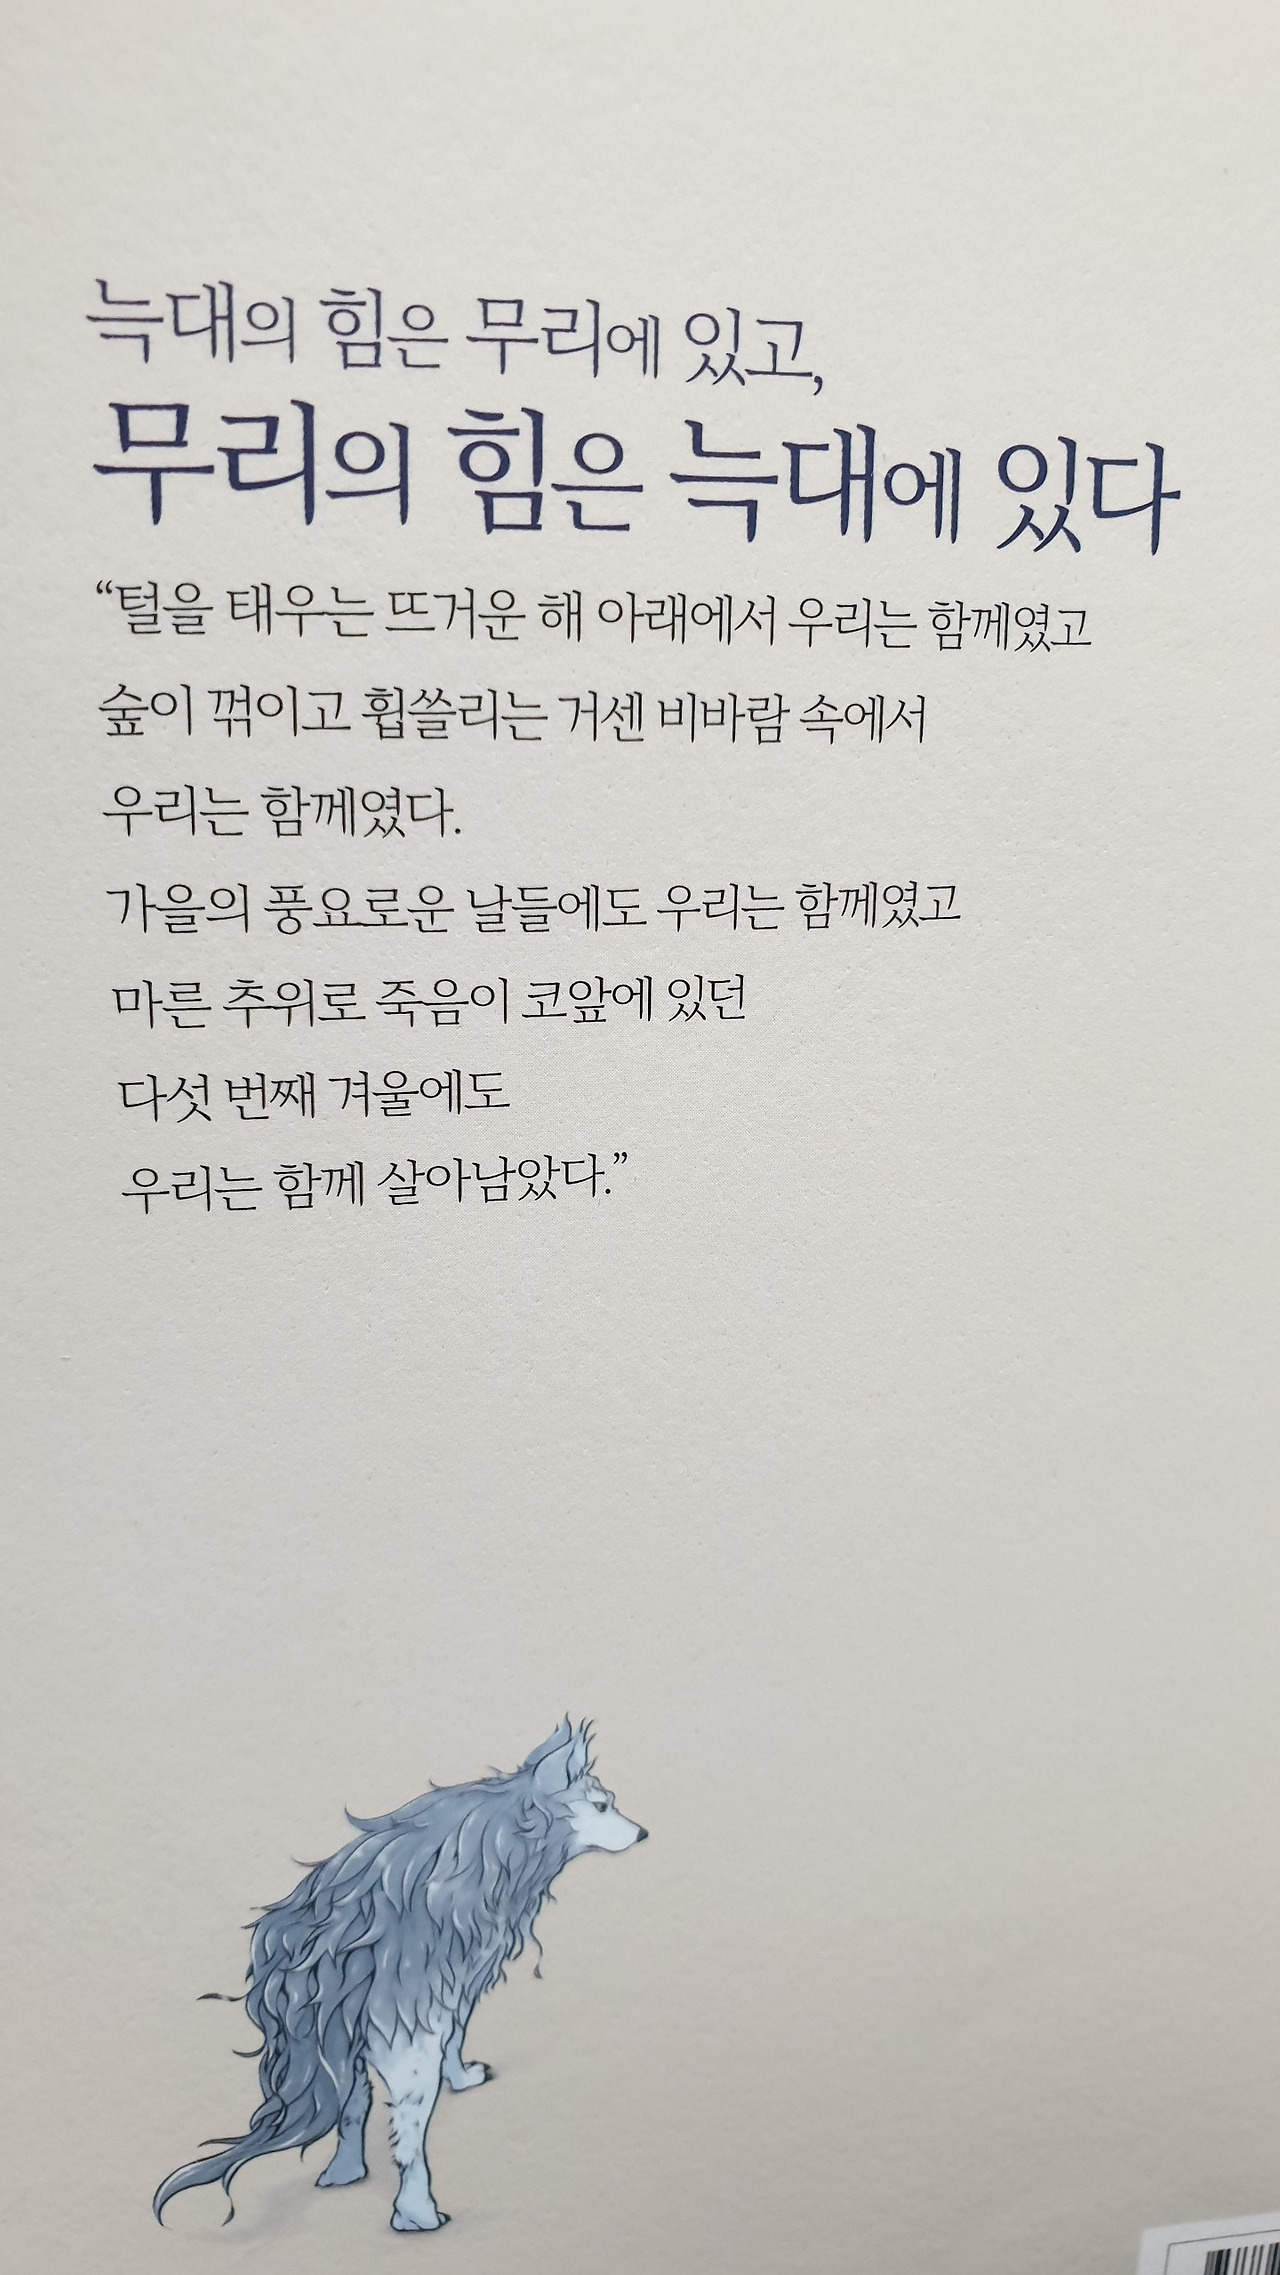 늑대의 힘은 무리에 있고,
무리의 힘은 늑대에 있다
“털을 태우는 뜨거운 해 아래에서 우리는 함께였고
숲이 꺾이고 휩쓸리는 거센 비바람 속에서
우리는 함께였다.
가을의 풍요로운 날들에도 우리는 함께였고
마른 추위로 죽음이 코앞에 있던
다섯 번째 겨울에도
우리는 함께 살아남았다.”